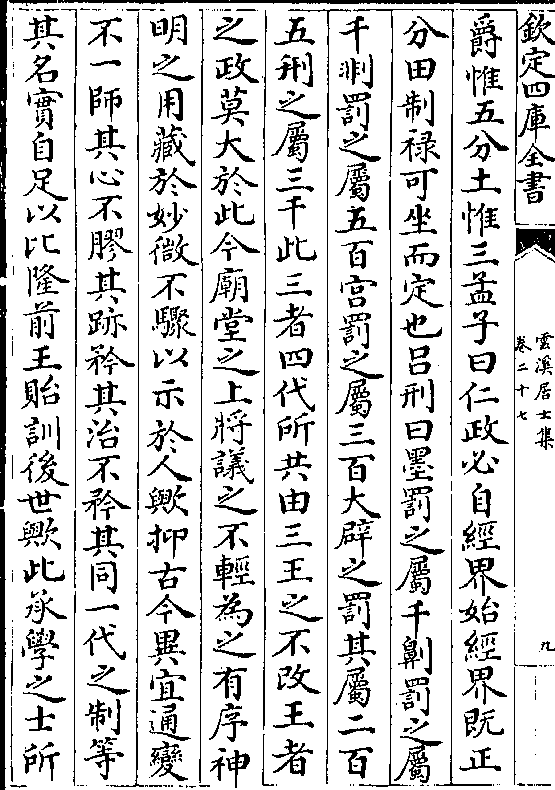 欽定四庫全書
雲溪居士集
卷二十七
九
爵惟五分土惟三孟子曰仁政必自經界始經界既正
分田制祿可坐而定也呂刑曰墨罰之屬千劓罰之屬
千剕罰之屬五百宮罰之屬三百大辟之罰其屬二百
五刑之屬三千此三者四代所共由三王之不改王者
之政莫大於此今廟堂之上將議之不輕為之有序神
明之用藏於妙微不驟以示於人歟抑古今異宜通變
不一師其心不膠其跡矜其治不矜其同一代之制等
其名實自足以比隆前王貽訓後世歟此承學之士所